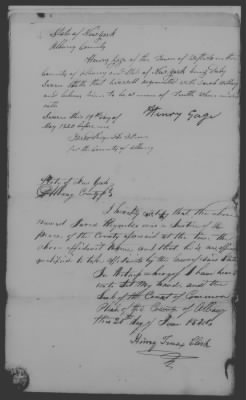 State of New York
Albany County
Henry Gage of the Town of in the
County of Albany and State of New York being duly
Sworn saith that he is well acquainted with
and knows him to be a man of Truth
Sworn this 19th day of
May 1820 before me
for the County of Albany
Henry Gage
State of New York
Albany County
I hereby certify that the above
named James was a Justice of the
peace of the County aforesaid at the time the
above affidavit taken and that he is an officer
qualified to take affidavits by the laws of said State
In testimony whereof I have here
unto set my hand and the
Seal of the Court of Common
Pleas of the County of Albany
this 20th day of June 1820
Henry Clerk